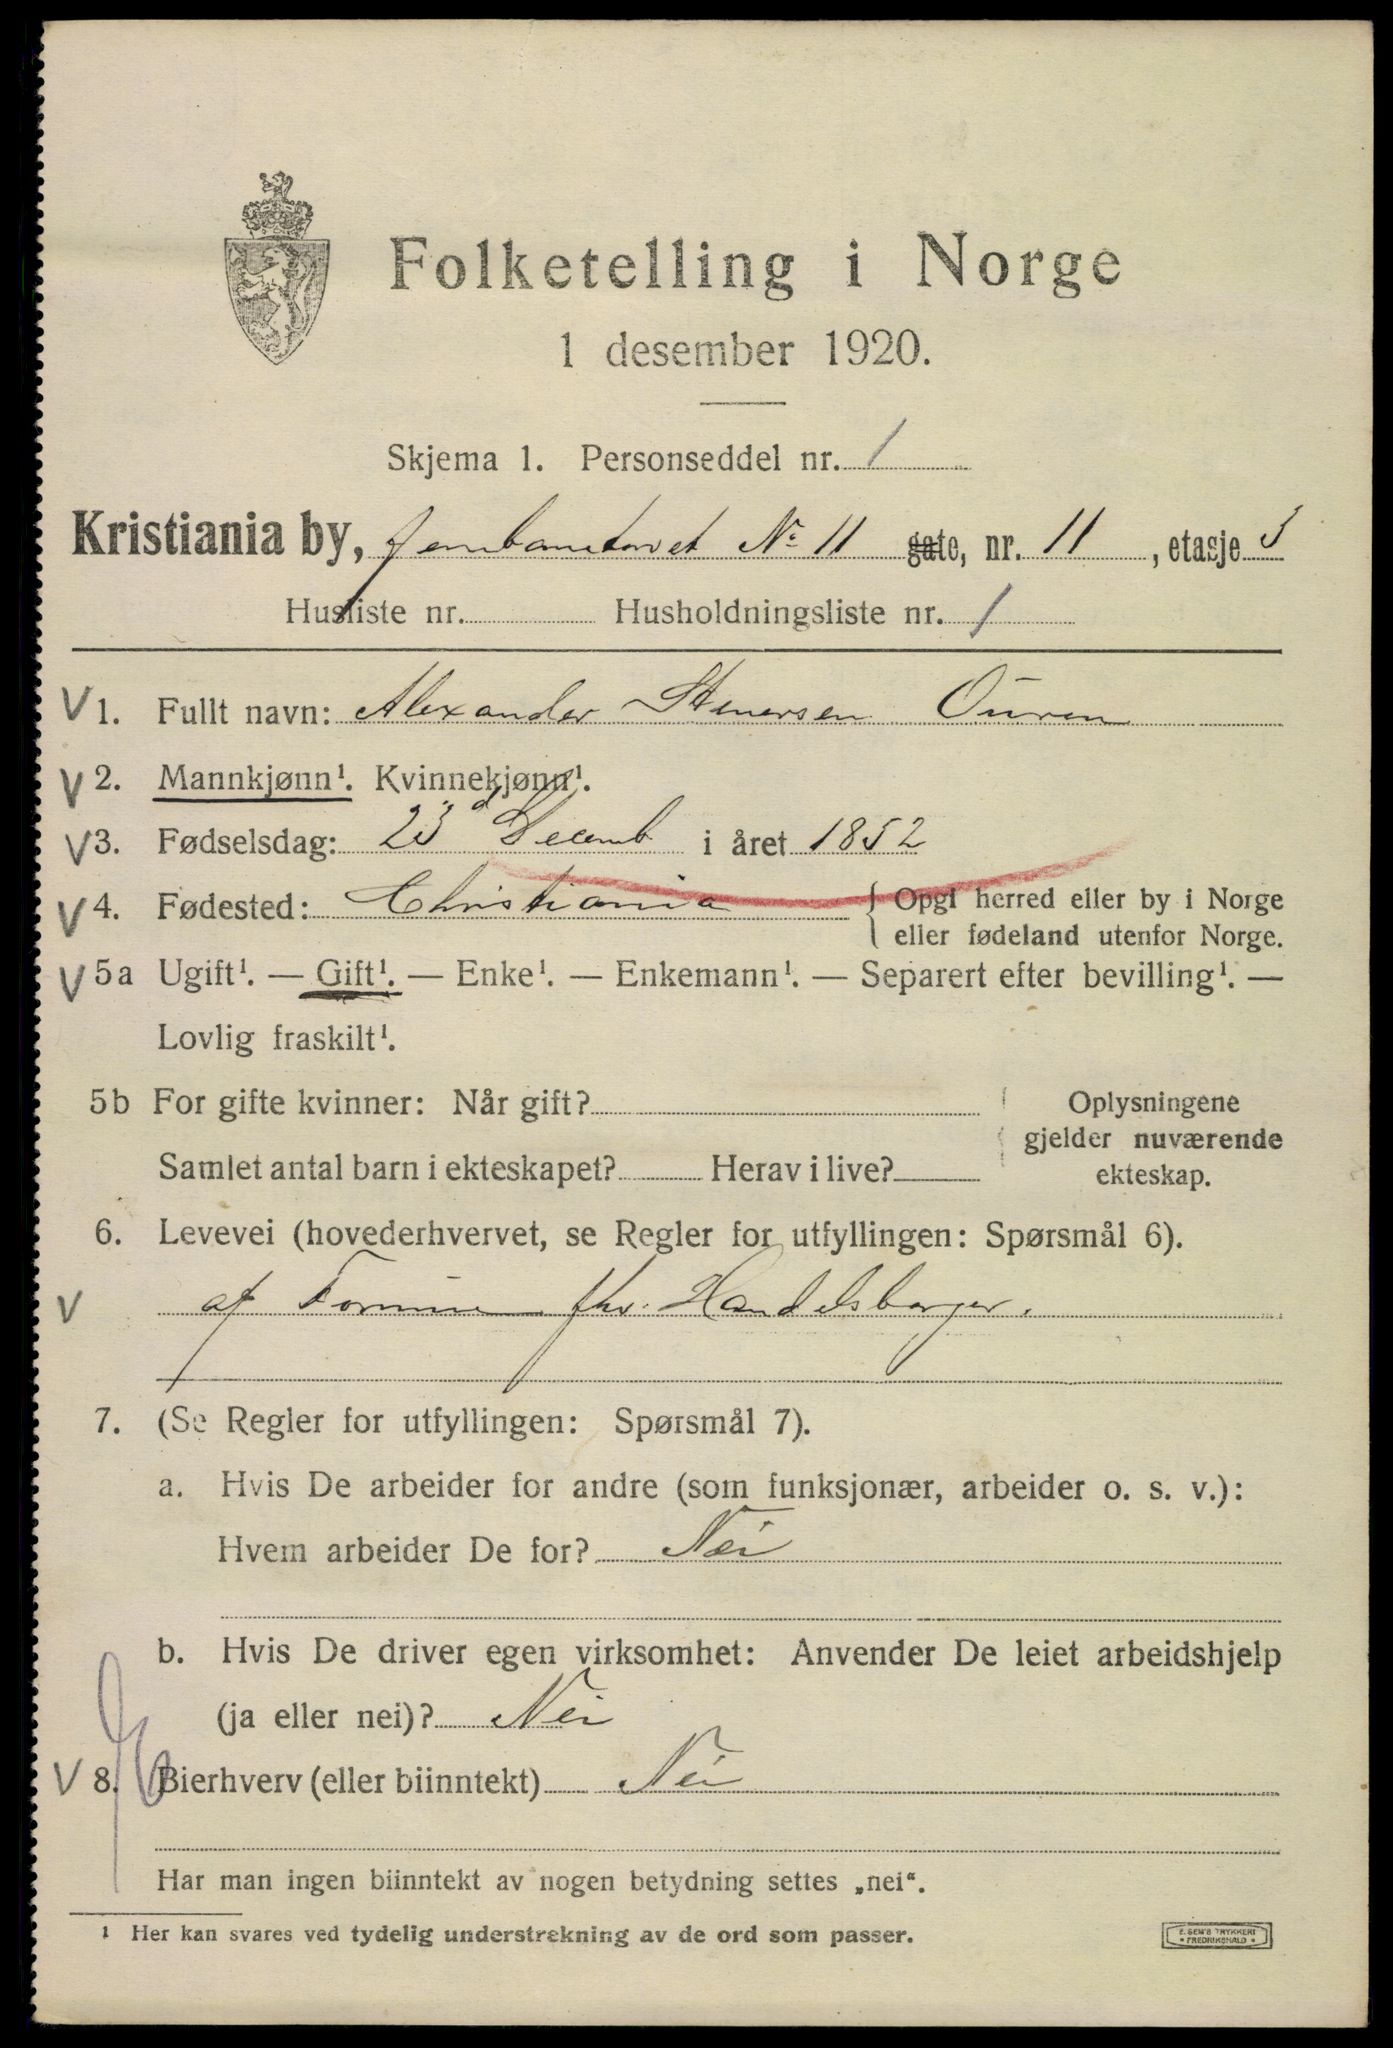 Folketelling i Norge
1 desember 1920.
Skjema 1. Personseddel nr. 1
Kristiania by, Jernbanetorvet No 11 gate, nr. 11, etasje 3
Husliste nr. 1 Husholdningsliste nr. 1
V 1. Fullt navn: Alexander Stenersen Ouren
V 2. Mannkjønn¹. Kvinnekjønn¹.
V 3. Fødselsdag: 23d Decemb i året 1852
V 4. Fødested: Christiania { Opgi herred eller by i Norge
eller fødeland utenfor Norge.
V 5a Ugift¹. — Gift¹. — Enke¹. — Enkemann¹. — Separert efter bevilling¹. —
Lovlig fraskilt¹.
5b For gifte kvinner: Når gift? Oplysningene
gjelder nuværende
Samlet antal barn i ekteskapet? Herav i live? ekteskap.
6. Levevei (hovederhvervet, se Regler for utfyllingen: Spørsmål 6).
V af Formue fhv. Handelsborger.
7. (Se Regler for utfyllingen: Spørsmål 7).
a. Hvis De arbeider for andre (som funksjonær, arbeider o. s. v.):
Hvem arbeider De for? Nei
b. Hvis De driver egen virksomhet: Anvender De leiet arbeidshjelp
(ja eller nei)? Nei
V 8. Bierhverv (eller biinntekt) Nei
Har man ingen biinntekt av nogen betydning settes „nei“.
¹ Her kan svares ved tydelig understrekning av de ord som passer.
E. SEM'S TRYKKERI
• FREDRIKSHALD •